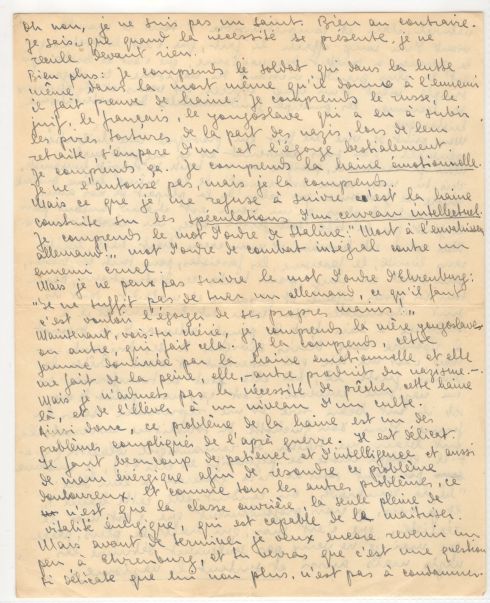 Oh non, je ne suis pas un saint. Bien au contraire.
Je sais, que quand la nécessité se présente, je ne
recule devant rien.
Bien plus: Je comprends le soldat qui dans la lutte
même, dans la mort même qu'il donne à l'ennemi
il fait preuve de haine. Je comprends le russe, le
juif, le français, le yougoslave qui a eu à subir
les pires tortures de la part des nazis, lors de leur
retraite, s'empare d'un et l'égorge bestialement.
Je comprends ça. Je comprends la haine émotionnelle.
Je ne l'autorise pas, mais je la comprends.
Mais ce que je me refuse à suivre c'est la haine
construite sur les spéculations d'un cerveau intellectuel.
Je comprends le mot d'ordre de Staline: "Mort à l'envahisseur
allemand!" mot d'ordre de combat intégral contre un
ennemi cruel.
Mais je ne peux pas suivre le mot d'ordre d'Ehrenburg:
"Je ne suffit pas de tuer un allemand, ce qu'il faut
c'est vouloir l'égorger de ses propres mains!"
Maintenant, vois-tu chérie, je comprends la mère yougoslave
ou autre, qui fait cela. Je la comprends, cette
femme dominée par la haine émotionnelle et elle
me fait de la peine, elle, - autre produit du nazisme. -
Mais je n'admets pas la nécessité de prêcher cette haine
là, et de l'élever à un niveau d'un culte.
Ainsi donc, ce problème de la haine est un des
problèmes compliqués de l'après guerre. Il est délicat.
Il faut beaucoup de patience et d'intelligence et aussi
de main énergique afin de résoudre ce problème
douloureux. Et comme tous les autres problèmes, ce
n'est, que la classe ouvrière, la seule pleine de
vitalité énergique, qui est capable de la maîtriser.
Mais avant de terminer je veux encore revenir un
peu à Ehrenburg, et tu verras que c'est une question
si délicate que lui non plus, n'est pas à condamner.